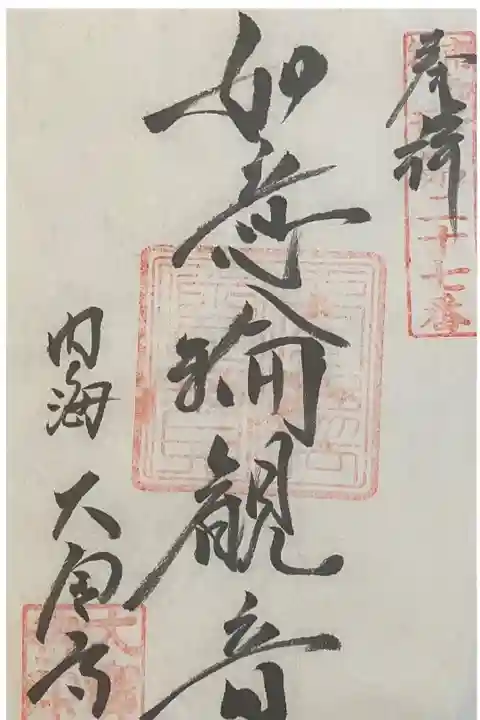 奉拝
第二十七番
如意輪観音
内海 大宝寺